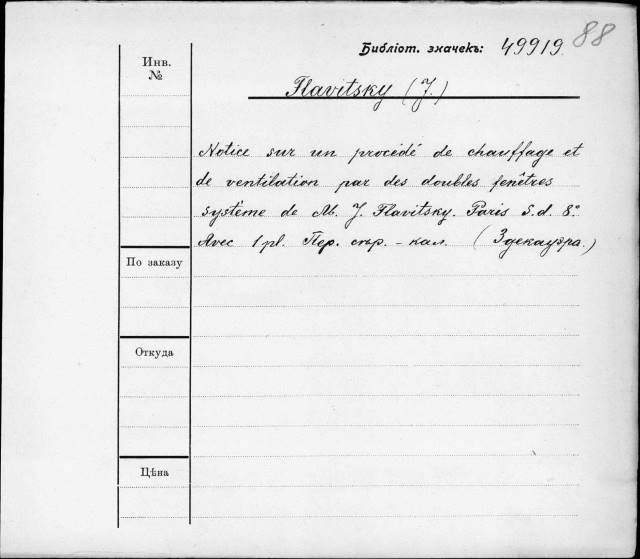 Библіот. значекъ: 49919 88
Инв.
№
Flavitsky (J.)
Notice sur un procédé de chauffage et
de ventilation par des doubles fenêtres
système de M. J. Flavitsky. Paris S. d. 8°.
Avec 1 pl. Пер. скр. - кал. (Здекауэра.)
По заказу
Откуда
Цѣна